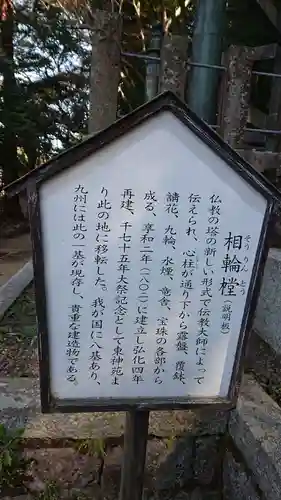 そうりんとう
相輪橖（説明板）
仏教の塔の新しい形式で伝教大師によって
伝えられ、心柱が通り下から露盤、覆鉢、
請花、九輪、水煙、竜舎、宝珠の各部から
成る。享和二年（一八〇二）に建立し弘化四年
再建、千七十五年大祭記念として東神苑よ
り此の地に移転した。我が国に八基あり、
九州には此の一基が現存し、貴重な建造物である。